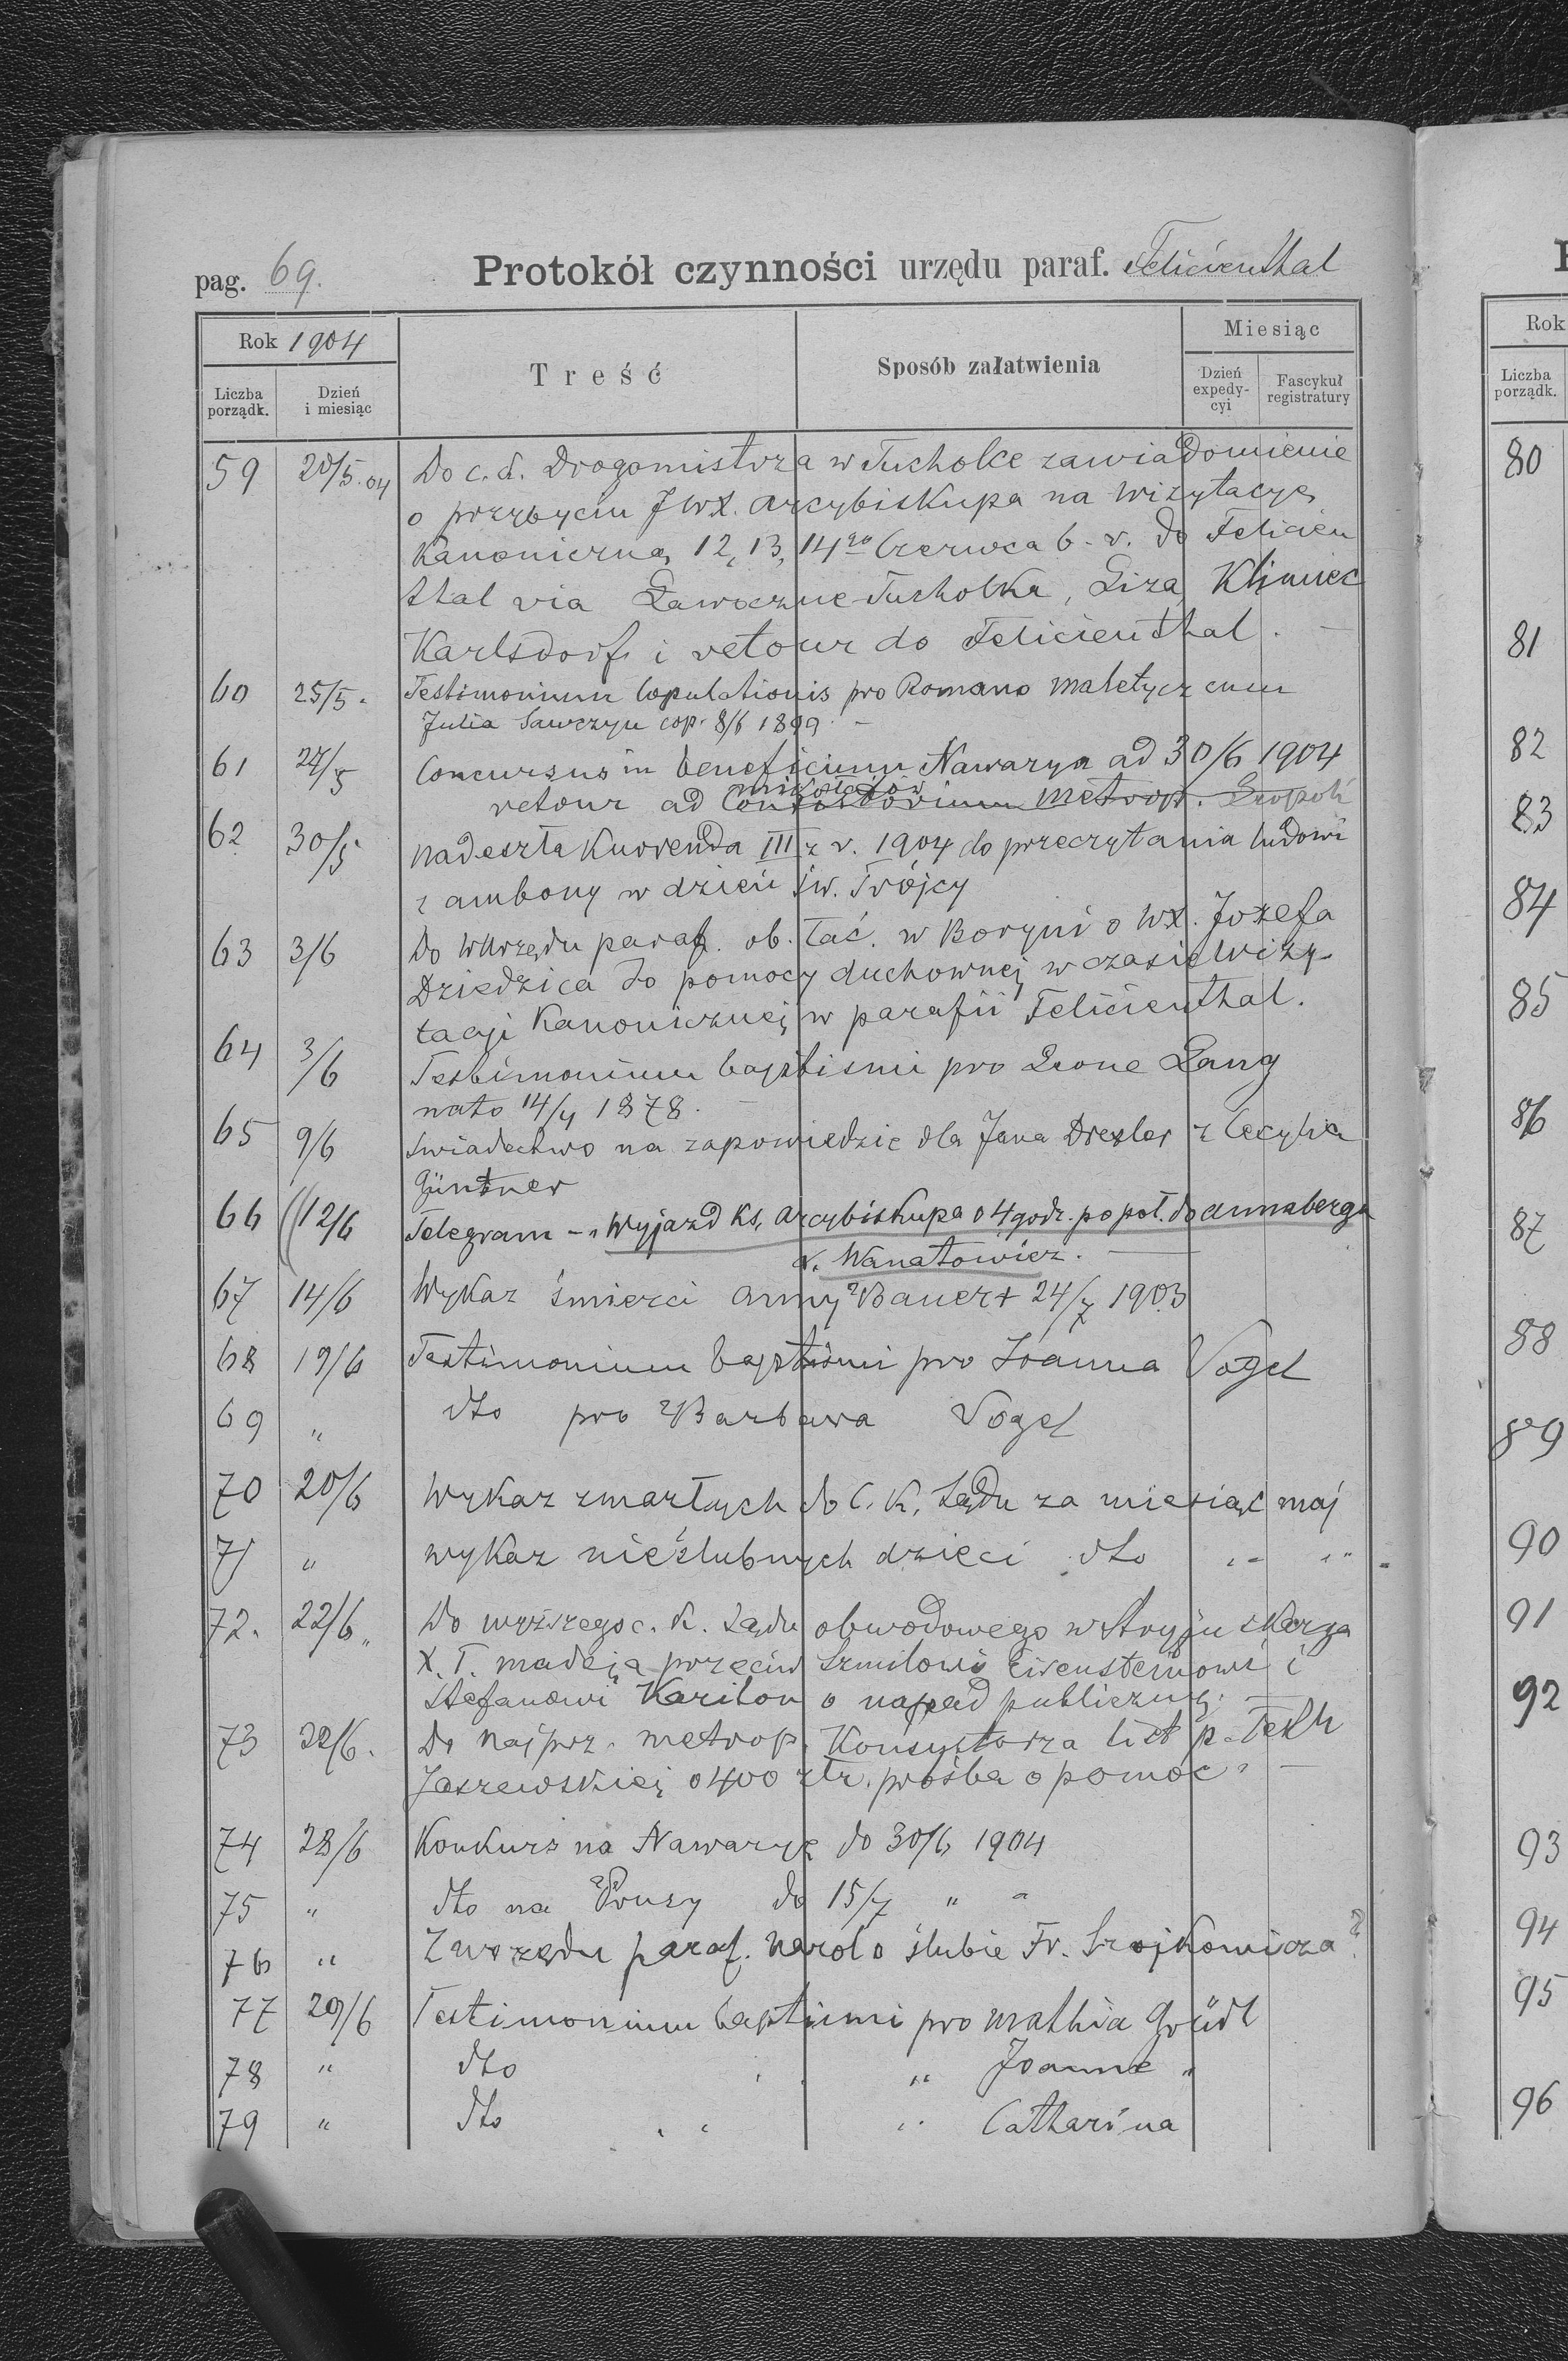 pag. 69. Protokół czynności urzędu paraf. Felicienthal
Rok 1904
Treść
Sposób załatwienia
Miesiąc
Liczba porządk.
Dzień i miesiąc
Dzień expedy-cyi
Fascykuł registratury
59 20/5.04 Do c.k. Drogomistrza w Tucholce zawiadomienie
o przybyciu JWX. Arcybiskupa na wizytacyę
Kanoniczną 12, 13, 14go Czerwca b. r. do Felicien
thal via Ławoczne Tucholka, Liza, Klimiec
Karlsdorf i retour do Felicienthal. —
60 25/5. Testimonium Copulationis pro Romano Maletycz cum
Julia Sawczyn cop. 8/6 1899. —
61 27/5 Concursus in beneficium Nawarya ad 30/6 1904
Mikołajów
retour ad Consistorium Metrop. Leopoli
62 30/5 Nadeszła Kurenda III z r. 1904 do przeczytania ludowi
z ambony w dzień św. Trójcy
63 3/6 Do Wurzędu paraf. ob. łać. w Boryni o WX. Józefa
Dziedzica do pomocy duchownej w czasie Wizy-
tacji Kanonicznej w parafii Felicienthal.
64 3/6 Testimonium baptismi pro Leone Lang
nato 14/4 1878. —
65 9/6 Swiadectwo na zapowiedzie dla Jana Drexler z Cecylią
Güntner
66 12/6 Telegram - „Wyjazd Ks. Arcybiskupa o 4 godz. po poł. do Annaberga
X. Wanatowicz. —
67 14/6 Wykaz śmierci Anny Bauer + 24/7 1903
68 19/6 Testimonium baptismi pro Joanna Vogel
69 „ dto pro Barbara Vogel
70 20/6 Wykaz zmarłych do C. K. Sądu za miesiąc maj
71 „ wykaz nieślubnych dzieci dto „ „
72. 22/6 „ Do wyższego c. K. Sądu obwodowego w Stryju skarga
X. T. Madeja przeciw Szmilowi Eisensteinowi i
Stefanowi Kariton o napad publiczny. —
73 22/6. Do Najprz. metrop. Konsystorza list p. Tekli
Jaszewskiej o 400 złr. prośba o pomoc. —
74 28/6 Konkurs na Nawaryę do 30/6 1904
75 „ dto na Prusy do 15/7 „ „
76 „ Z urzędu paraf. Narol o ślubie Fr. Srojkowicza?
77 29/6 Testimonium baptismi pro Mathia Gründl
78 „ dto „ Joanne „
79 „ dto „ „ „ Catharina
Rok
Liczba porządk.
80
81
82
83
84
85
86
87
88
89
90
91
92
93
94
95
96